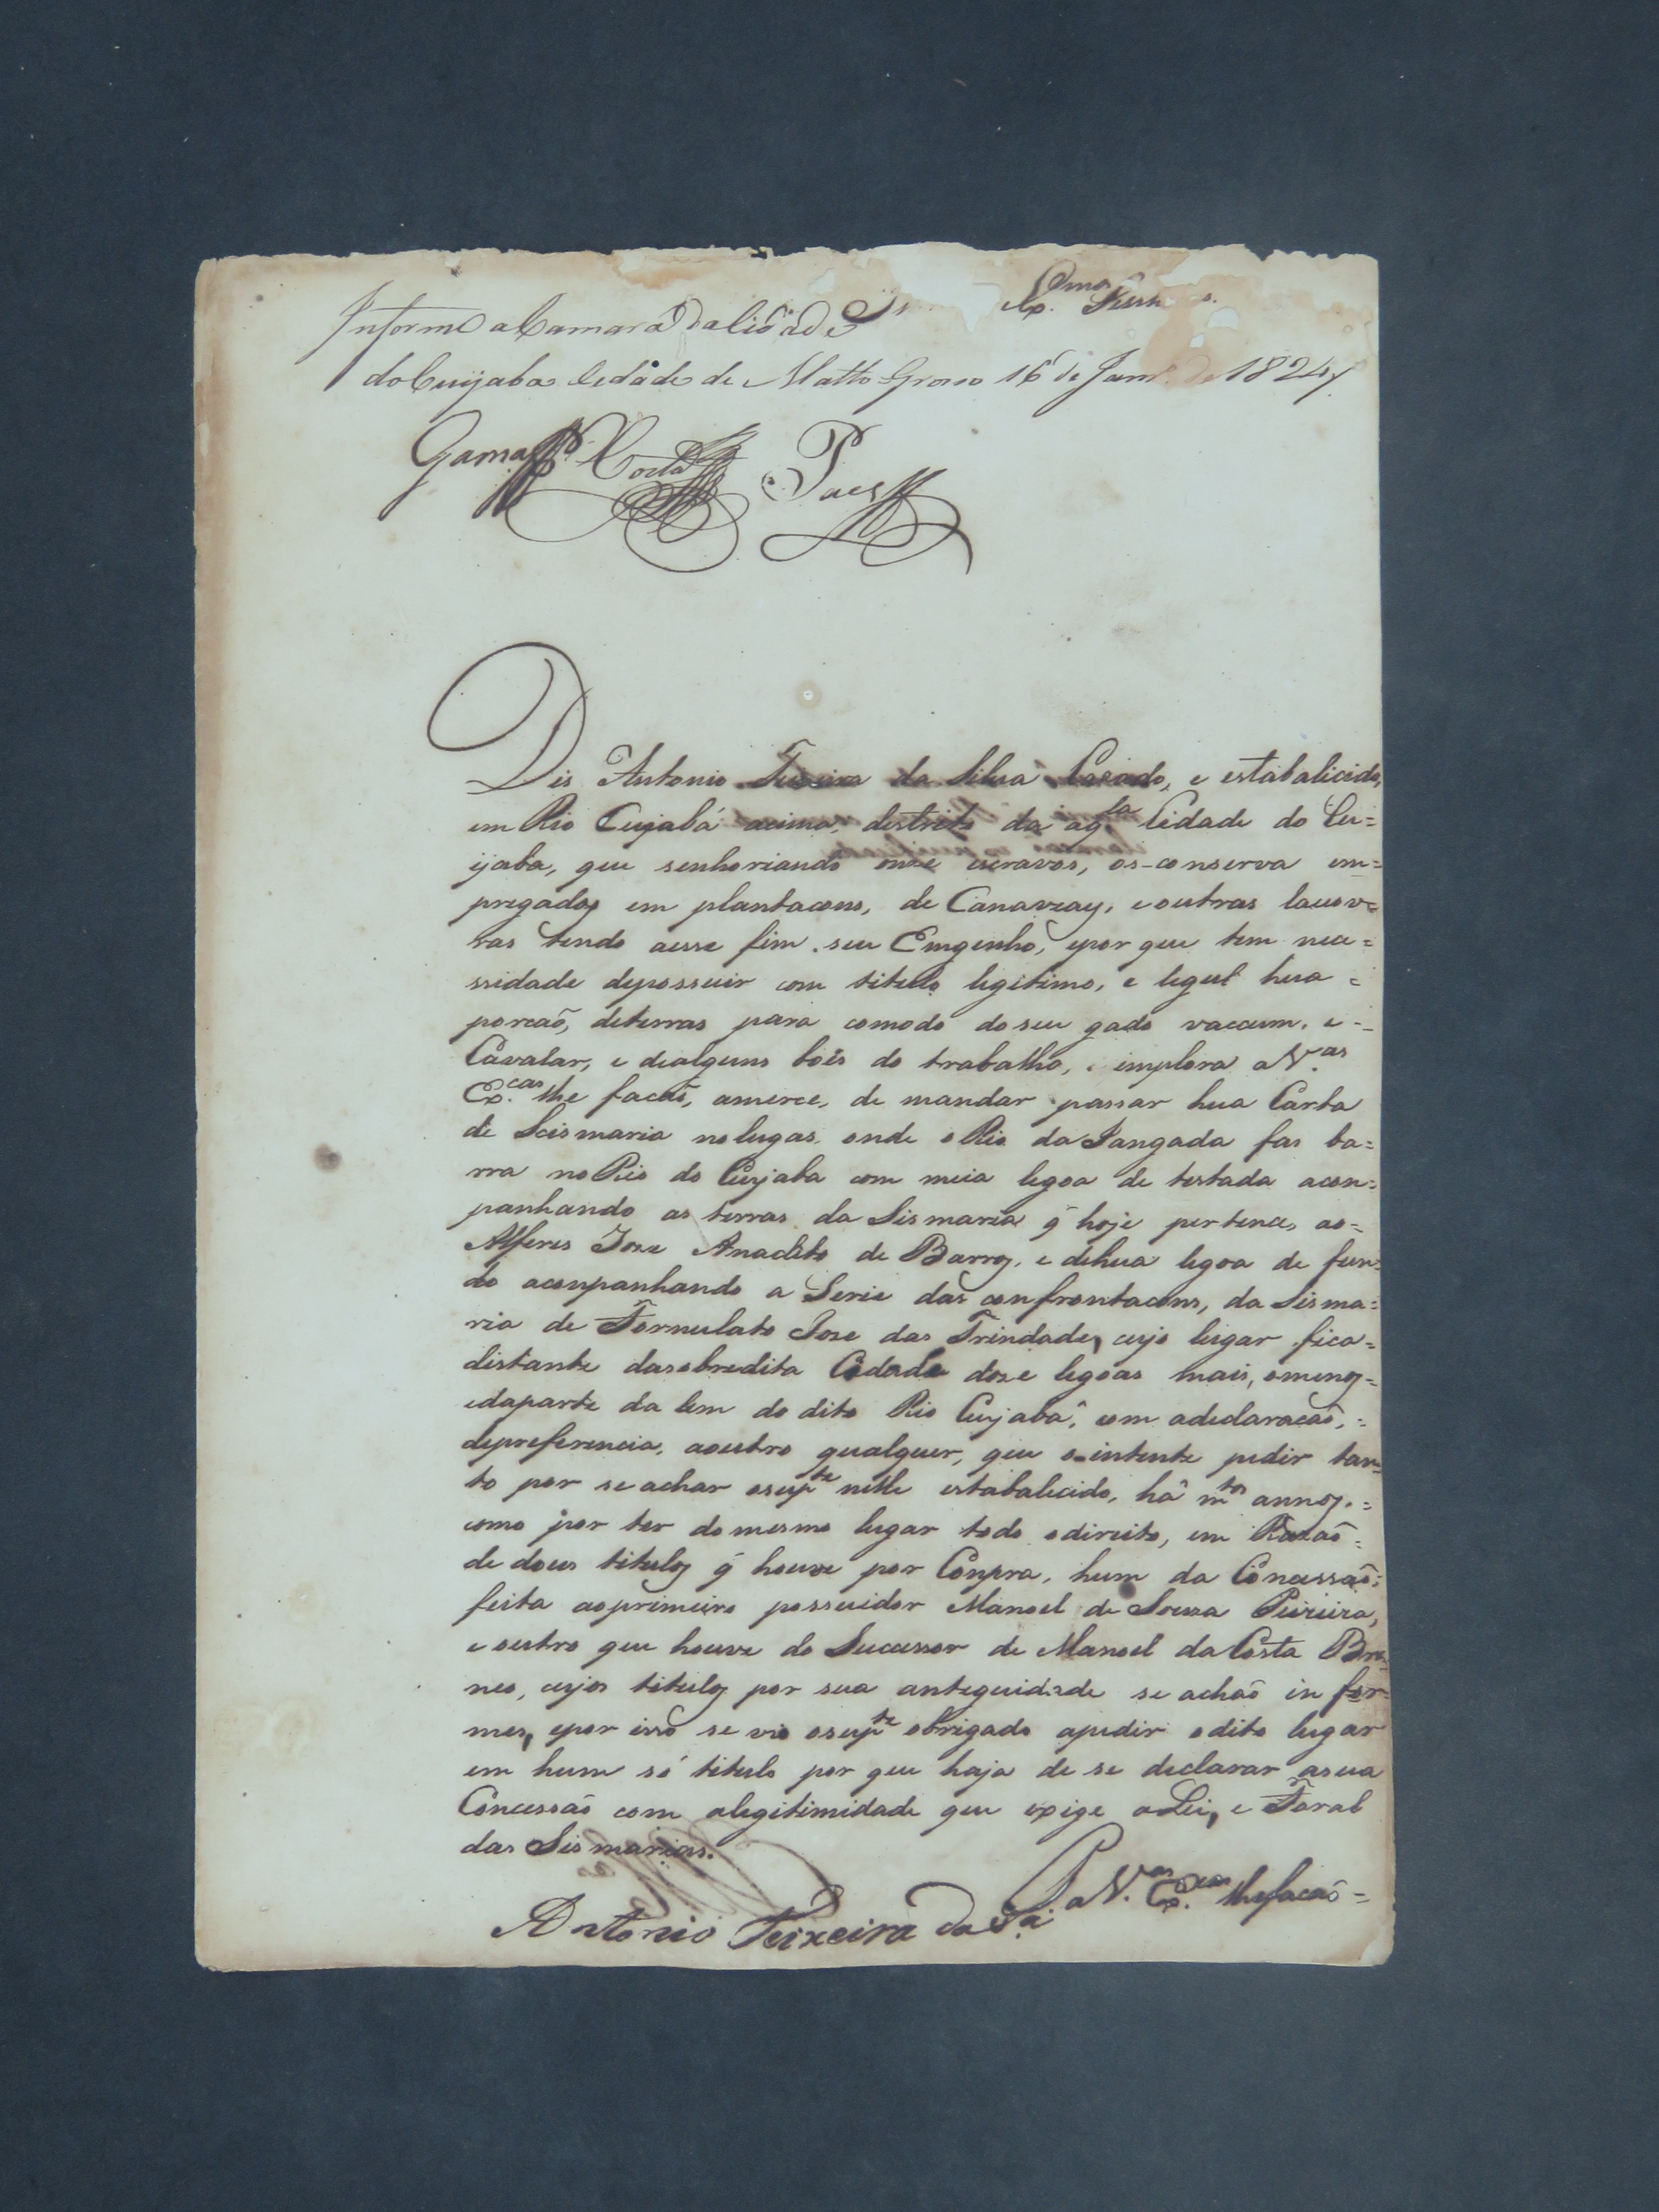 Ex.mos Senr s.
Informe a Camara da Cidade
do Cuyjaba Cedade de Matto Groso 16 de Janr.o de 1824
Gama Costa Paes
Dis Antonio Teixeira da Silva Cazado, e estabalicido,
em Rio Cuyjabá acima, destrito da aq.la Cidade do Cu=
yjaba, que senhoriando onze escravos, os-conserva em=
pregados em plantacons, de Canaveay, e outras lauov=
ras tendo aesse fim seu Emgenho, epor que tem nece=
ssidade depossuir com titulo legitimo, e legul hua =
porcaõ, deterras para comodo do seu gado vaccum, e =
Cavalar, e dealguns bois do trabalho, implora a V.as
Ex.cas lhe facaõ, amerce, de mandar passar hua Carta
de Scismaria nolugar onde o Rio da Jangada fas ba=
rra no Rio do Cuyjaba com meia legoa de testada acon=
panhando as terras da Sismaria q̃ hoje pertence, ao=
Alferes Joze Anacleto de Barros, e dehua legoa de fun=
do aconpanhando a Serie das confrontacons, da Sisma=
ria de Fornulato Joze das Trindade, cujo lugar fica=
distante dasobredita Cidade doze legoas mais, omenos=
edaparte da lem do dito Rio Cuyjabâ, com adeclaracaõ,=
depreferencia, aoutro qualquer, que o intente pedir tan=
to por se achar osup.te nelle estabalecido, hâ m.tos annos,=
como por ter do mesmo lugar todo odireito, em Razaõ=
de dous titulos q̃ houve por Conpra, hum da Concessaõ=
feita aoprimeiro possuidor Manoel de Souza Pereira,
e outro que houve do Sucessor de Manoel da Costa Bra=
nco, cujos titulos por sua anteguidade se achaõ in for=
mes, epor isso se vio osup.te obrigado apedir odito lugar
em hum só titulo por que haja de se declarar asua
Concessaõ com alegitimidade que exige a Lei, e Foral
das Sismarias.
P a V.as Ex.cas lhefacaõ =
Antonio Teixeira da S.a